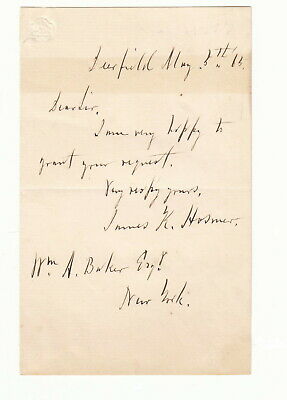 Deerfield May 5th 65.
Dear Sir,
I am very happy to
grant your request.
Very resp'y yours,
James K. Hosmer.
Wm A. Baker Esq.
New York.